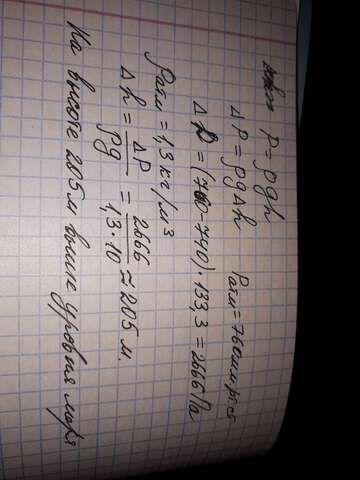 P = ρgh
ΔP = ρgΔh
Pатм = 760 мм рт. ст
ΔP = (760-740) · 133,3 = 2666 Па
ρатм = 1,3 кг/м³
Δh = ΔP/ρg = 2666/1,3·10 ≈ 205 м.
На высоте 205м выше уровня моря